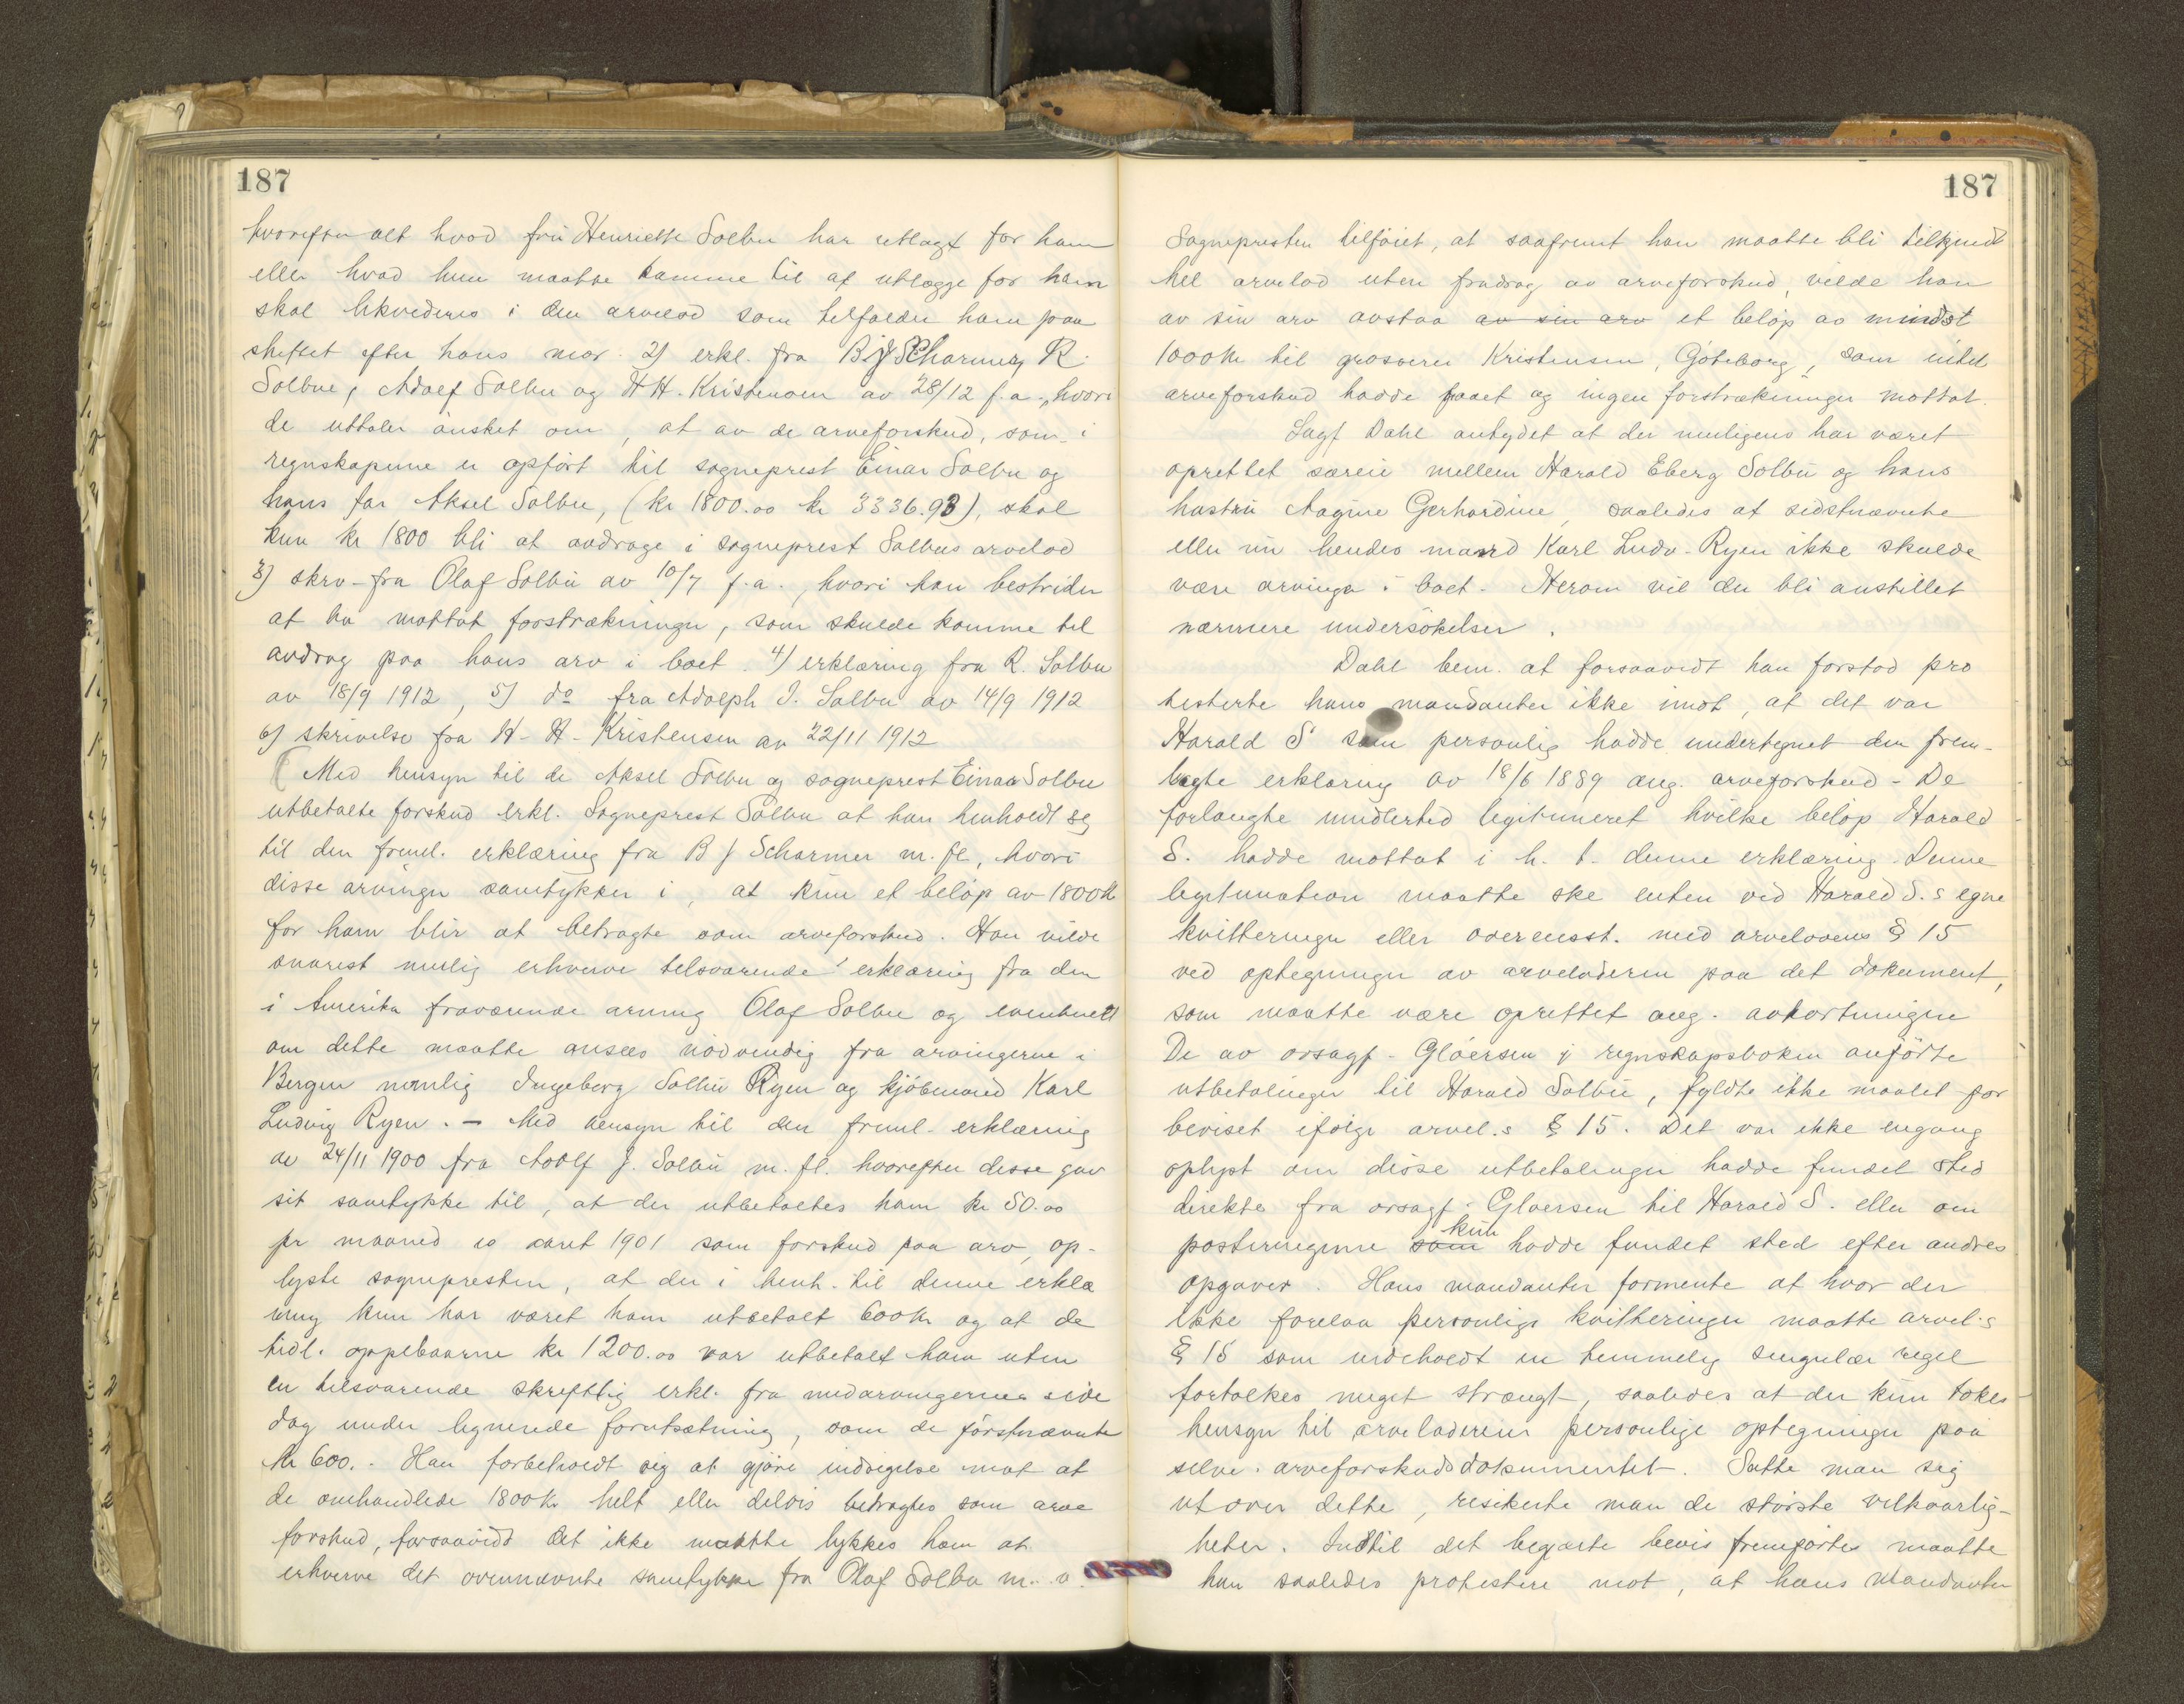 187
hvorefter alt hvad fru Henriette Solbu har utlagt for ham
eller hvad hun maatte komme til at utlægge for ham
skal likvideres i den arvelod som tilfalder ham paa
skiftet efter hans mor. 2) erkl. fra B J Scharmer, R.
Solbue, Adolf Solbu og H H. Kristensen av 28/12 f.a., hvori
de uttaler ønsket om, at av de arveforskud, som i
regnskapene er opført til sogneprest Einar Solbu og
hans far Aksel Solbu, (kr 1800.00 kr 3336.93), skal
kun kr 1800 bli at avdrage i sogneprest Solbus arvelod
3) skrv. fra Olaf Solbu av 10/7 f.a., hvori han bestrider
at ha mottat forstrækninger, som skulde komme til
avdrag paa hans arv i boet. 4) erklæring fra R. Solbu
av 18/9 1912, 5) do fra Adolph J. Solbu av 14/9 1912
6) skrivelse fra H. H. Kristensen av 22/11 1912
Med hensyn til de Aksel Solbu og sogneprest Einar Solbu
utbetalte forskud erkl. Sogneprest Solbu at han henholdt sig
til den freml. erklæring fra B J Scharmer m. fl., hvori
disse arvinger samtykker i, at kun et beløp av 1800 kr
for ham blir at betragte som arveforskud. Han vilde
snarest mulig erhverve tilsvarende erklæring fra den
i Amerika fraværende arving Olaf Solbu og eventuelt
om dette maatte ansees nødvendig fra arvingerne i
Bergen nemlig Ingeborg Solbu Ryen og kjøbmand Karl
Ludvig Ryen. – Med hensyn til den freml. erklæring
av 24/11 1900 fra Adolf J. Solbu m. fl. hvorefter disse gav
sit samtykke til, at der utbetaltes ham kr 50.00
pr maaned i aaret 1901 som forskud paa arv, op-
lyste sognepresten, at der i henh. til denne erklæ
ring kun har været ham utbetalt 600 kr og at de
tidl. oppebaarne kr 1200.00 var utbetalt ham uten
en tilsvarende skriftlig erkl. fra medarvingernes side
dog under lignende forutsætning, som de førstnævnte
kr 600.- Han forbeholdt sig at gjøre indsigelse mot at
de omhandlede 1800 kr helt eller delvis betragtes som arve
forskud, forsaavidt det ikke maatte lykkes ham at
erhverve det ovennævnte samtykke fra Olaf Solbu m. v.
187
Sognepresten tilføiet, at saafremt han maatte bli tilkjendt
hel arvelod uten fradrag av arveforskud, vilde han
av sin arv avstaa av sin arv et beløp av mindst
1000 kr til grosserer Kristensen, Gøteborg, som intet
arveforskud hadde faaet og ingen forstrækninger mottat.
Sagf Dahl antydet at der muligens har været
oprettet særeie mellem Harald Eberg Solbu og hans
hustru Aagine Gerhardine, saaledes at sidstnævnte
eller nu hendes mand Karl Ludv. Ryen ikke skulde
være arvinger i boet. Herom vil der bli anstillet
nærmere undersøkelser.
Dahl bem. at forsaavidt han forstod pro
testerte hans mandanter ikke imot, at det var
Harald S. som personlig hadde undertegnet den frem-
lagte erklæring av 18/6 1889 ang. arveforskud. De
forlangte imidlertid legitimeret hvilke beløp Harald
S. hadde mottat i h. t. denne erklæring. Denne
legitimation maatte ske enten ved Harald S.s egne
kvitteringer eller overensst. med arvelovens § 15
ved optegninger av arveladeren paa det dokument,
som maatte være oprettet ang. avkortningen
De av orsagf. Gløersen i regnskapsboken anførte
utbetalinger til Harald Solbu, fyldte ikke maalet for
beviset ifølge arvel.s § 15. Det var ikke engang
oplyst om disse utbetalinger hadde fundet sted
direkte fra orsagf. Gløersen til Harald S. eller om
posteringerne som kun hadde fundet sted efter andres
opgaver. Hans mandanter formente at hvor der
ikke forelaa personlige kvitteringer maatte arvel.s
§ 15 som indeholdt en temmelig singulær regel
fortolkes meget strengt, saaledes at der kun tokes
hensyn til arveladerens personlige optegninger paa
selve arveforskudsdokumentet. Satte man sig
ut over dette, risikerte man de største vilkaarlig-
heter. Indtil det begjærte bevis fremførtes maatte
han saaledes protestere mot, at hans mandanter